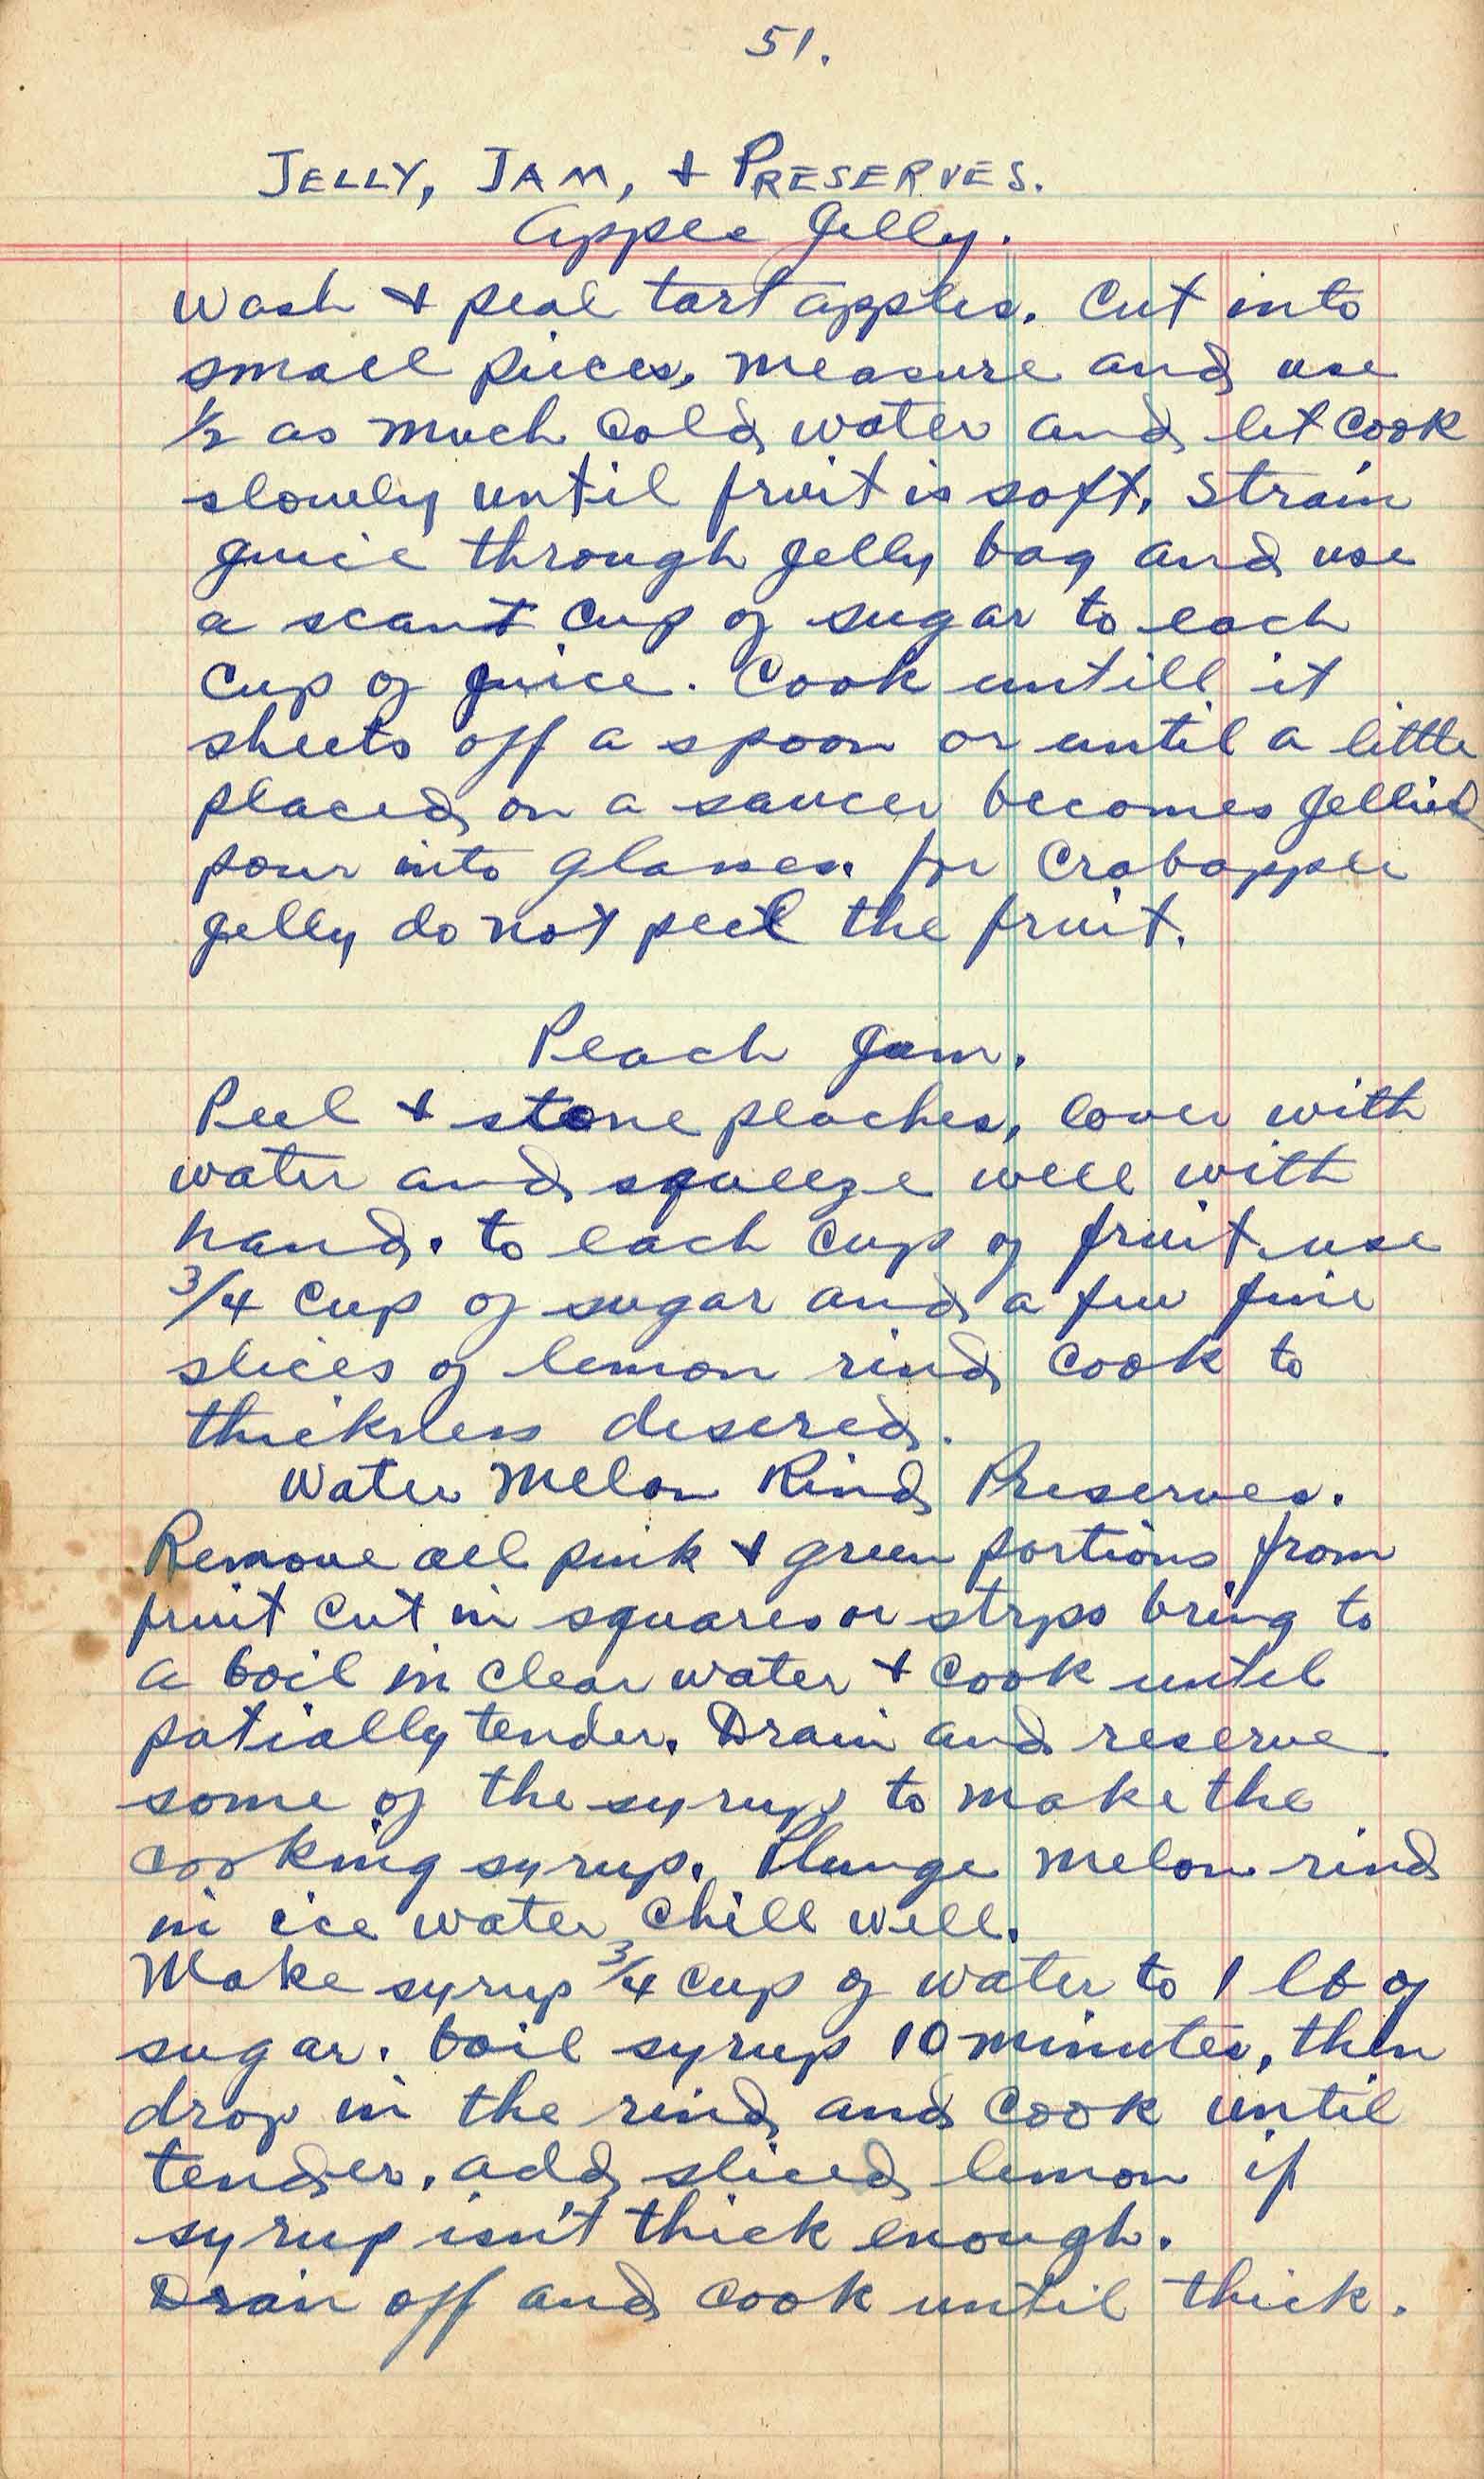 51.
JELLY, JAM, & PRESERVES.
Apple Jelly.
Wash & peal tart apples. Cut into
small pieces, measure and use
1/2 as much Cold water and let Cook
slowly until fruit is soft, Strain
juice through jelly bag and use
a scant Cup of sugar to each
Cup of juice. Cook untill it
sheets off a spoon or until a little
placed on a saucer becomes jellied
pour into glasses. for Crabapple
jelly do not peel the fruit.
Peach Jam.
Peel & stone peaches, Cover with
water and squeeze well with
hand. to each Cup of fruit use
3/4 Cup of sugar and a few fine
slices of lemon rind Cook to
thickness desered.
Water Melon Rind Preserves.
Remove all pink & green portions from
fruit Cut in squares or strps bring to
a boil in Clear water & Cook until
patially tender. Drain and reserve
some of the syrup to make the
Cooking syrup. Plunge melon rind
in ice water Chill well.
Make syrup 3/4 Cup of water to 1 lb of
sugar. boil syrup 10 minutes, then
drop in the rind and Cook until
tender. add sliced lemon if
syrup isn't thick enough.
Drain off and Cook until thick.